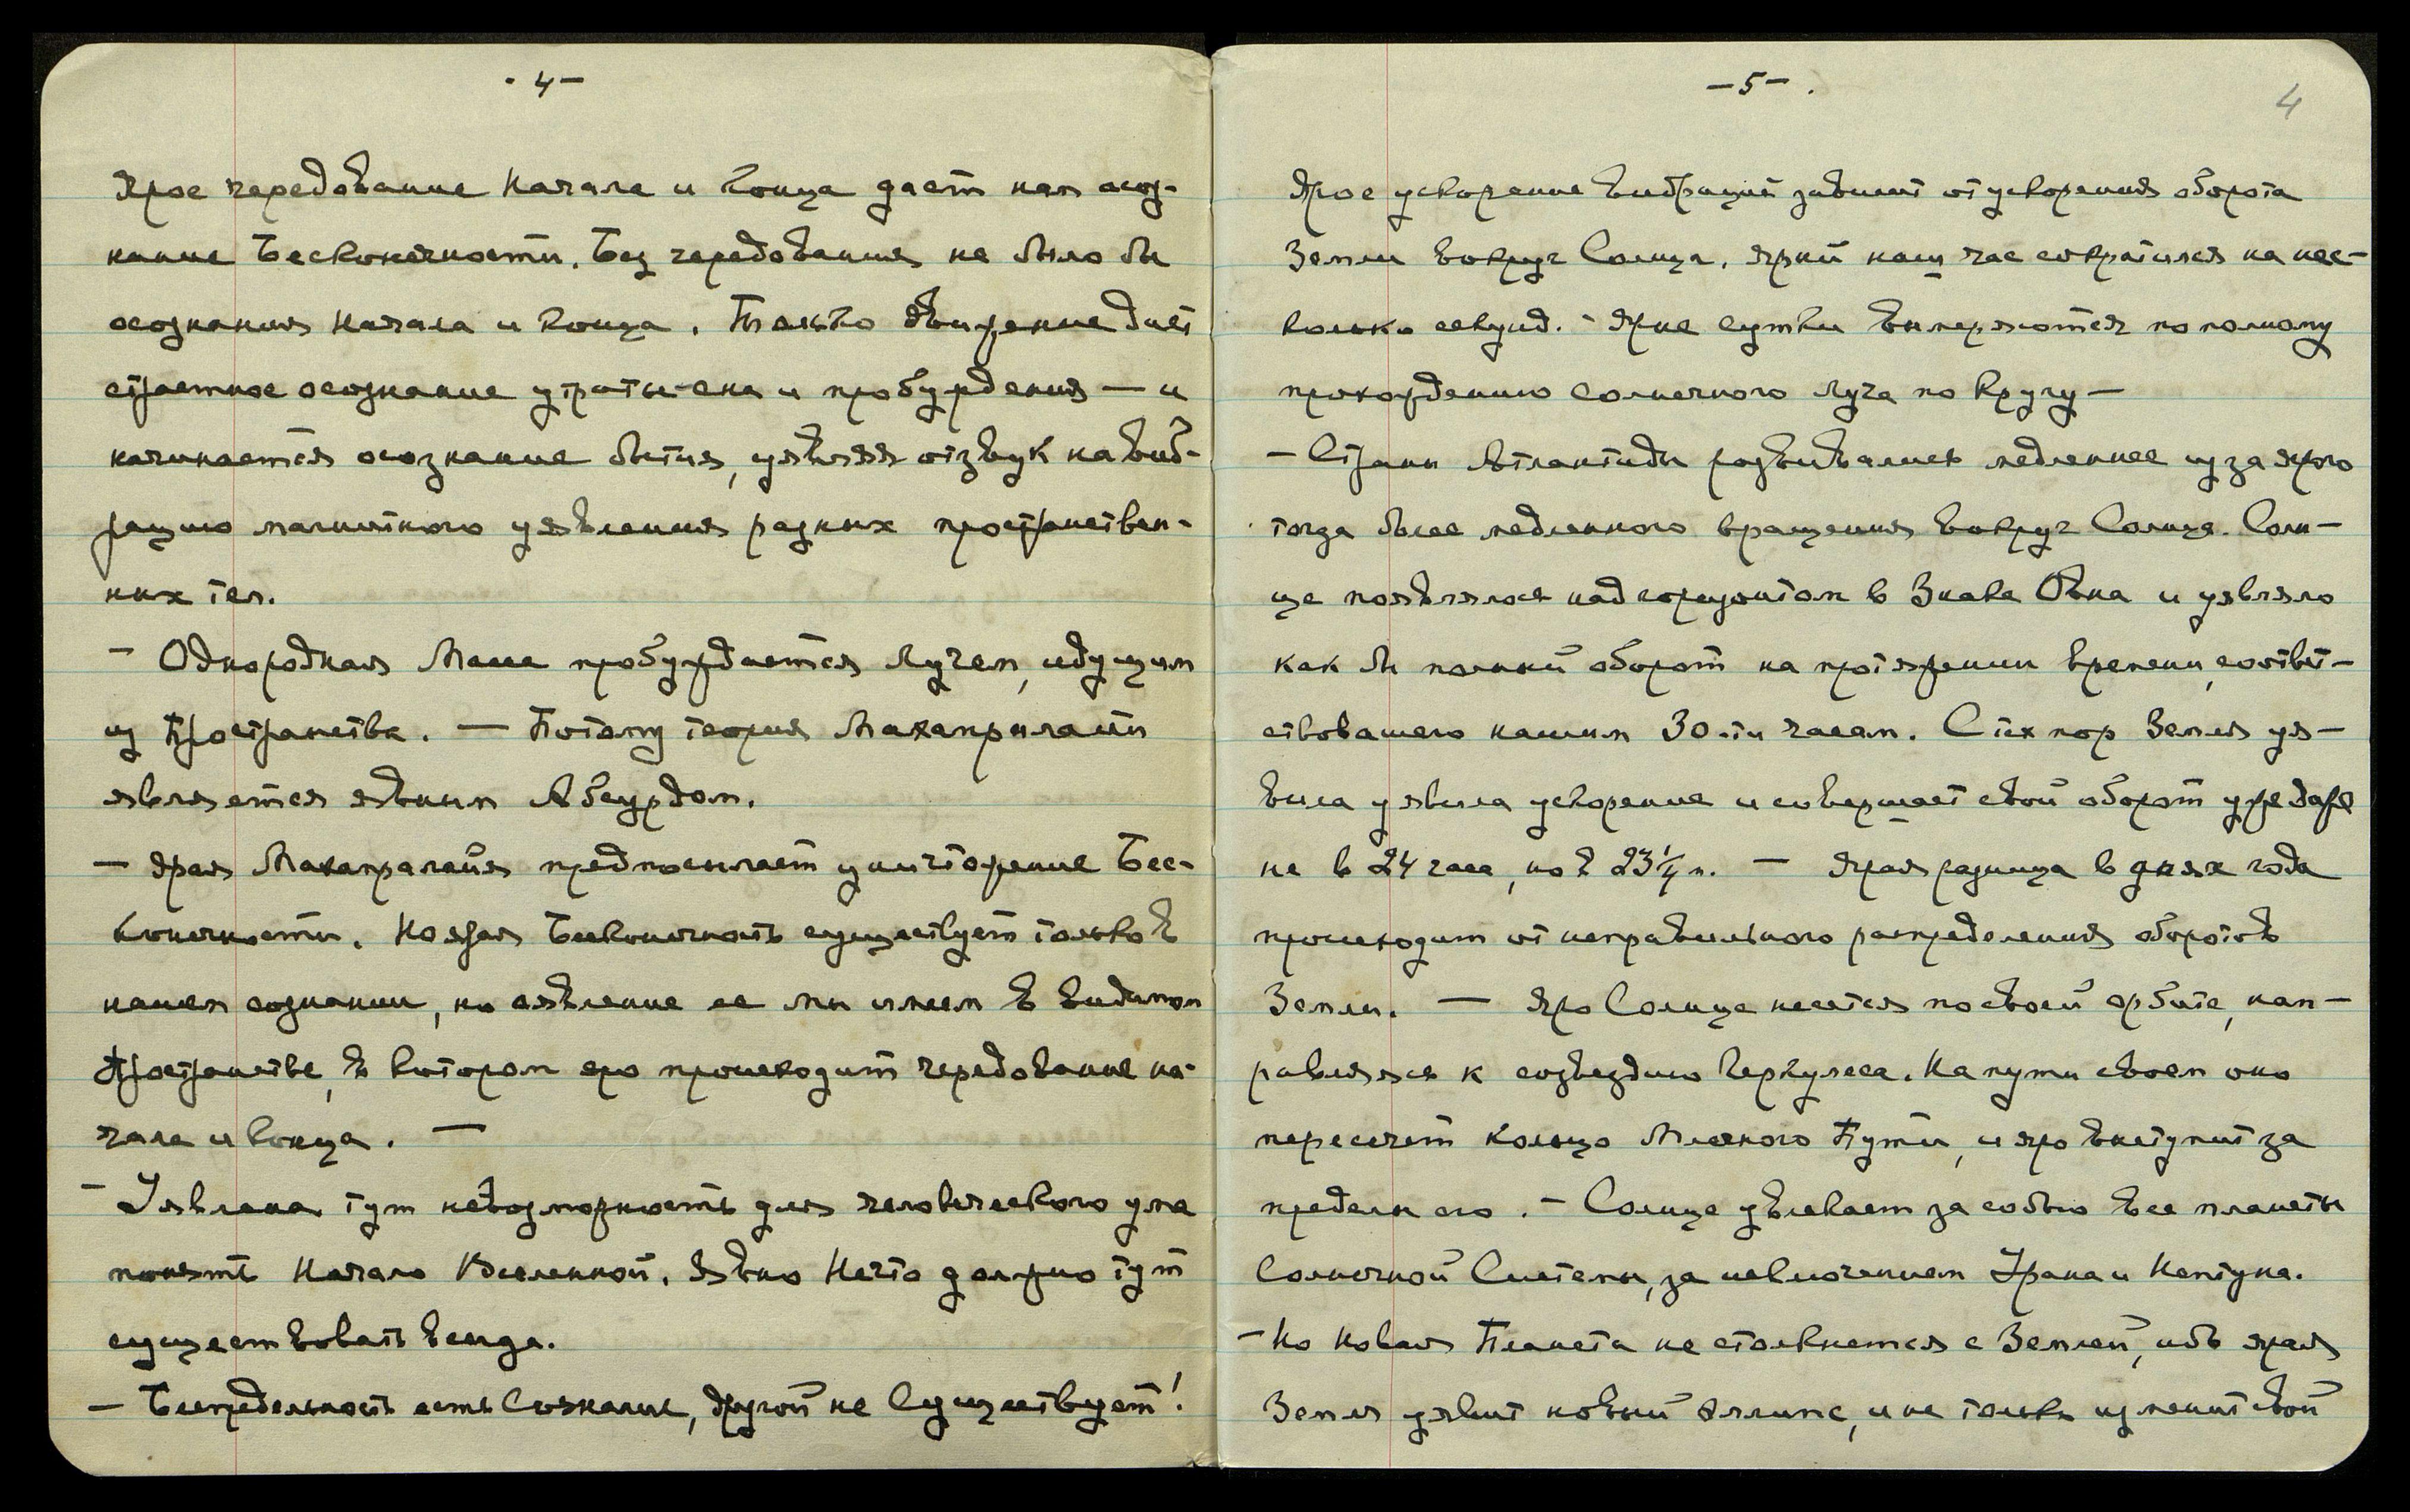 - 4 -
Ярое чередование Начала и Конца дает нам осоз-
нание Бесконечности. Без чередования не было бы
осознания Начала и Конца. Только движение дает
страстное осознание утраты сна и пробуждения — и
начинается осознание бытия, уявляя отзвук на виб-
рацию магнитного уявления разных пространствен-
ных тел.
— Однородная Масса пробуждается Лучем, идущим
из Пространства. — Потому теория Махапралайи
является явным Абсурдом.
— Ярая Махапралайя предпосылает уничтожение Бес-
конечности. Но ярая Бесконечность существует только в
нашем сознании, но явление ее мы имеем в видимом
Пространстве, в котором яро происходит чередование на-
чала и конца. —
— Уявлена тут невозможность для человеческого ума
понять Начало Вселенной. Явно Нечто должно тут
существовать всегда.
— Беспредельность есть Сознание, другой не Существует!
- 5 - .
4
Ярое ускорение вибраций зависит от ускорения оборота
Земли вокруг Солнца. Ярый наш час сократился на нес-
колько секунд. - Ярые сутки вымеряются по полному
прохождению солнечного луча по кругу —
— Страны Атлантиды развивались медленнее из за ярого
тогда более медленного вращения вокруг Солнца. Солн-
це появлялось над горизонтом в Знаке Овна и уявляло
как бы полный оборот на протяжении времени, соответ-
ствовашего нашим 30-ти часам. С тех пор Земля уя-
вила уявила ускорение и совершает свой оборот уже даже
не в 24 часа, но в 23¼ м. — Ярая разница в днях года
происходит от неправильного распределения оборотов
Земли. — Яро Солнце несется по своей орбите, нап-
равляясь к созвездию Геркулеса. На пути своем оно
пересечет Кольцо Млечного Пути, и яро выступит за
пределы его. - Солнце увлекает за собою все планеты
Солнечной Системы, за исключением Урана и Нептуна.
— Но Новая Планета не столкнется с Землей, ибо ярая
Земля уявит новый эллипс, и не только изменит свой